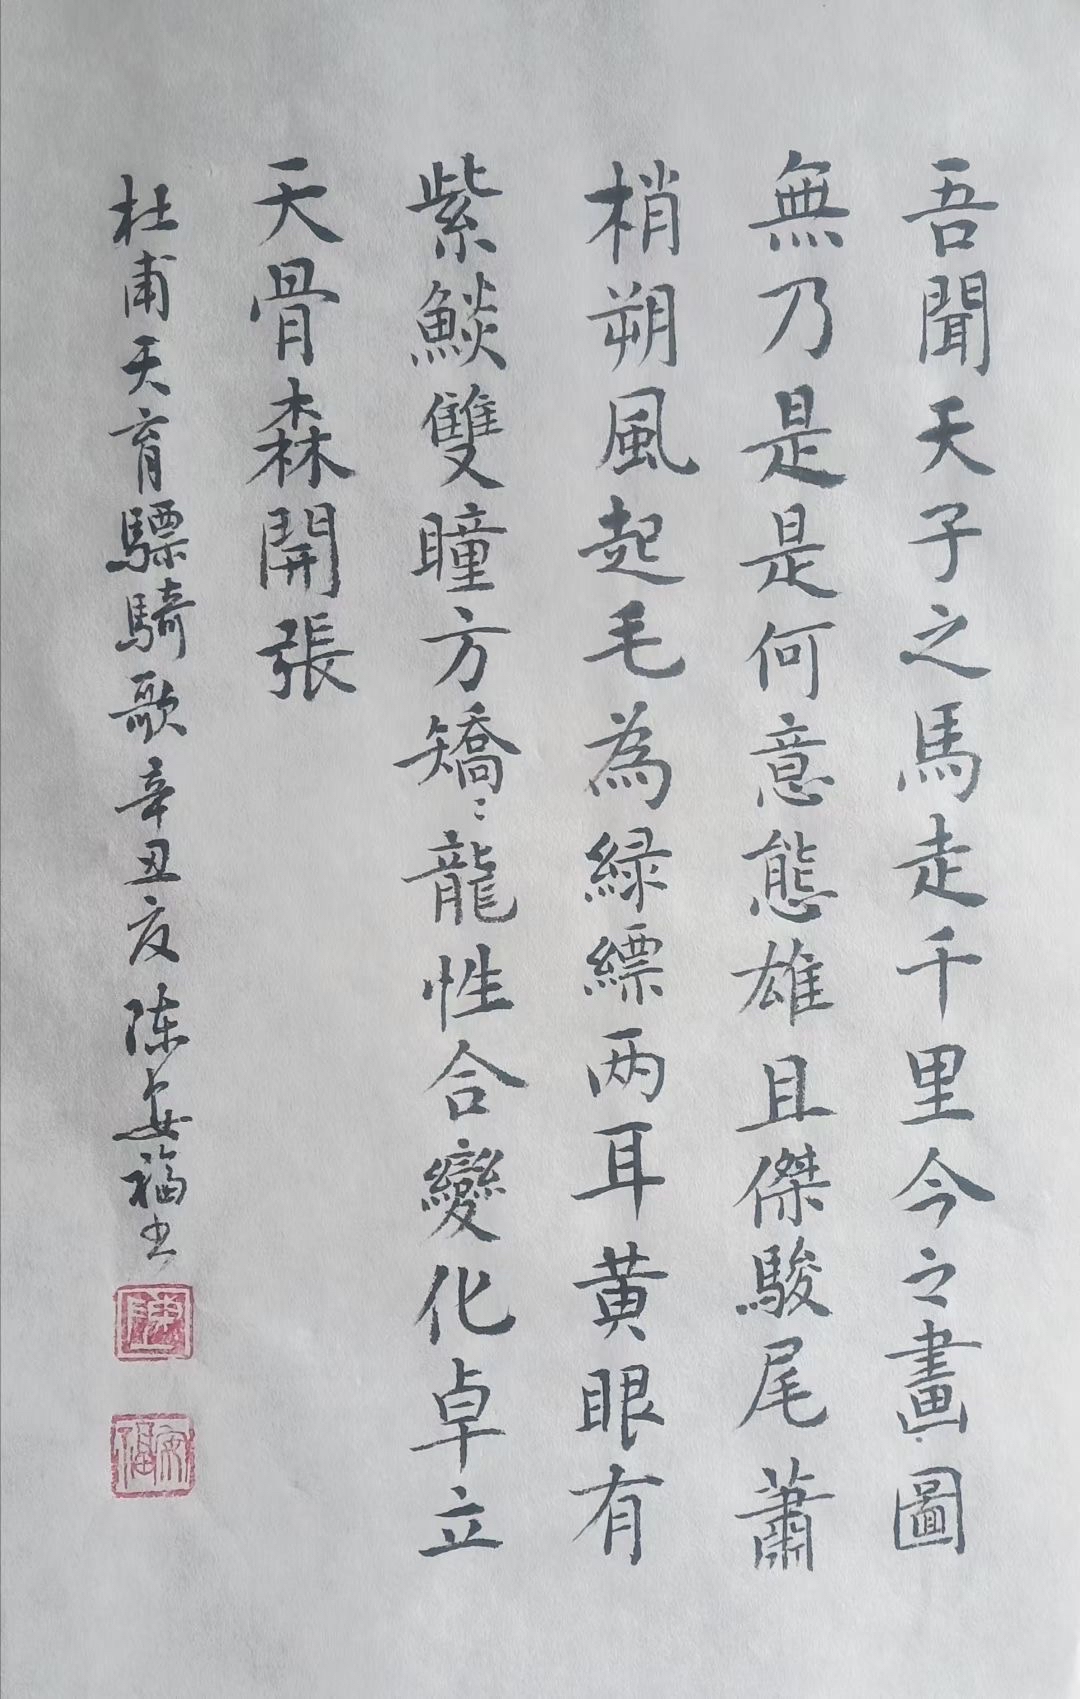 吾聞天子之馬走千里今之畫圖
無乃是是何意態雄且傑駿尾蕭
梢朔風起毛為緑縹两耳黄眼有
紫燄雙瞳方矯〻龍性合變化卓立
天骨森開張
杜甫天育驃騎歌辛丑夏陈安福书
陳
安福